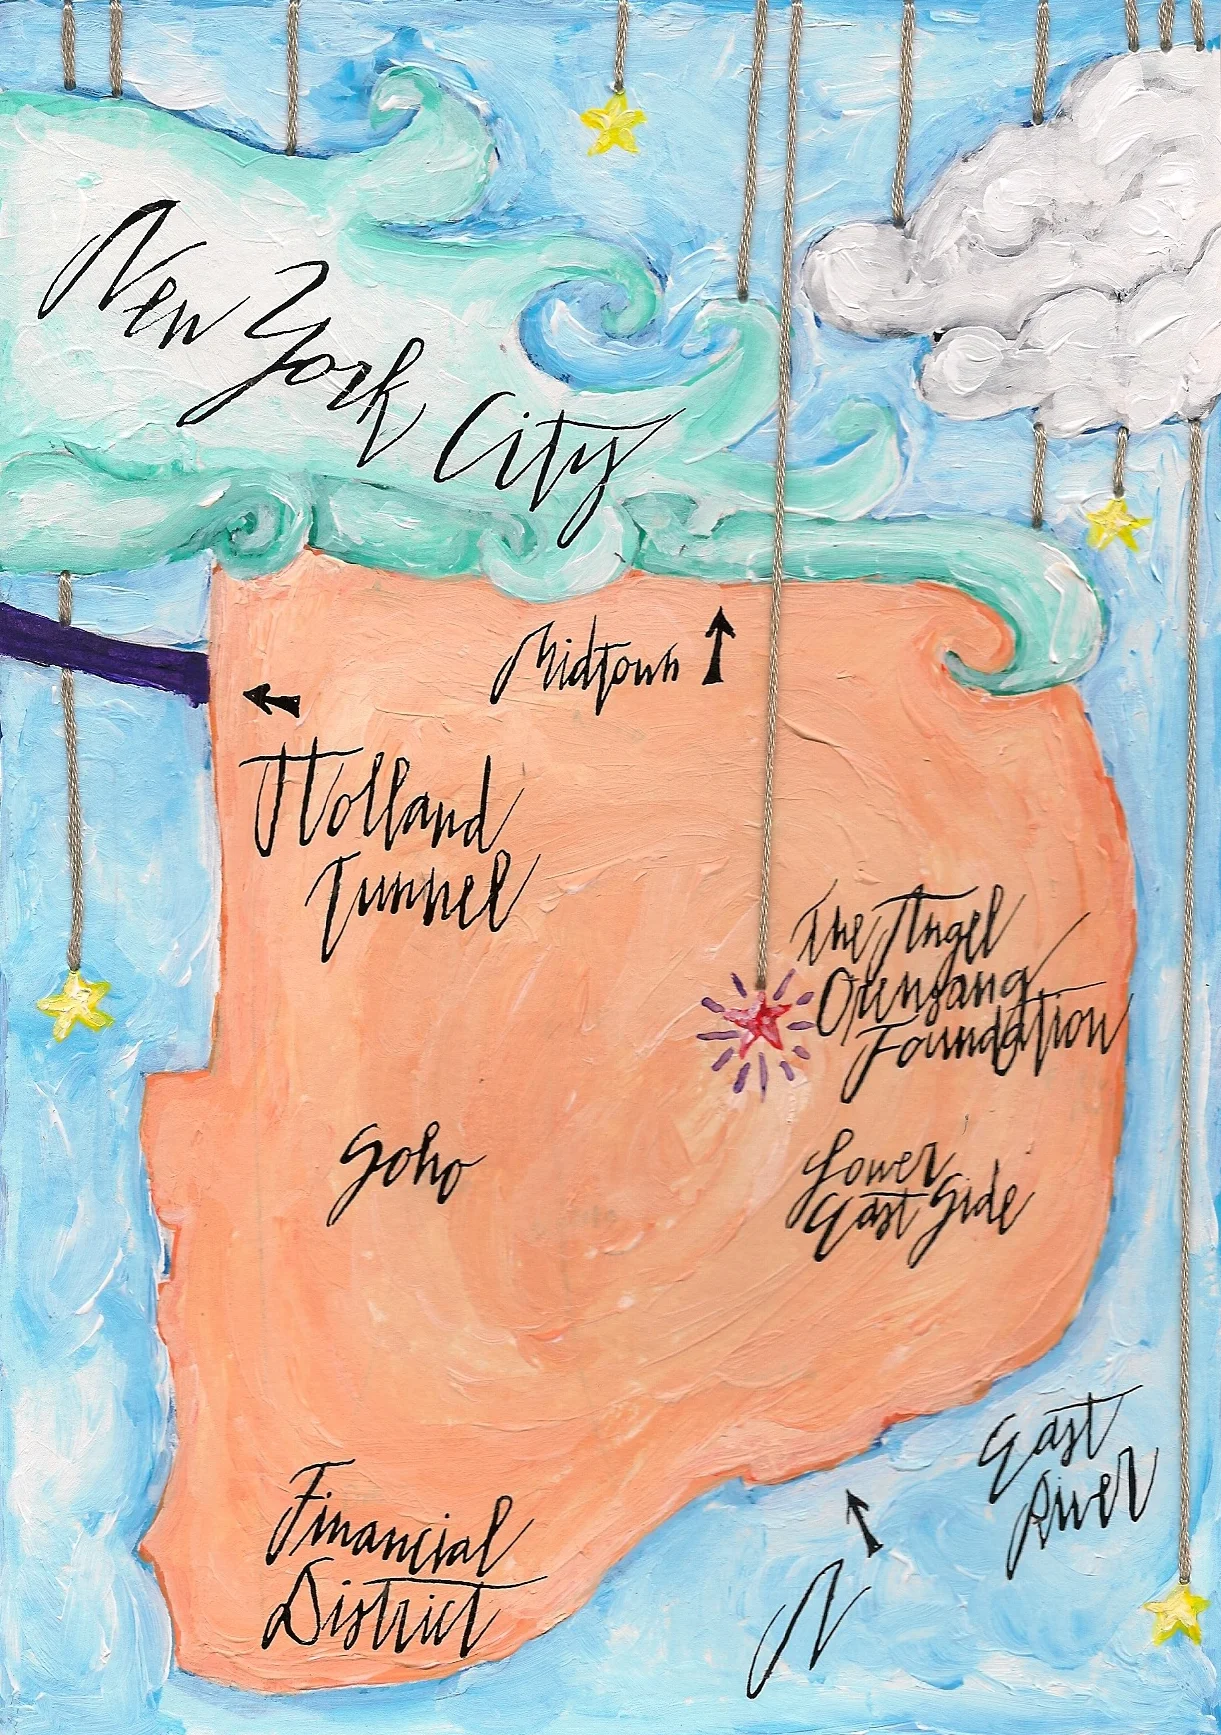 New York City
Midtown
Holland
Tunnel
The Angel
Orensang
Foundation
Soho
Lower
East Side
East
River
Financial
District
N